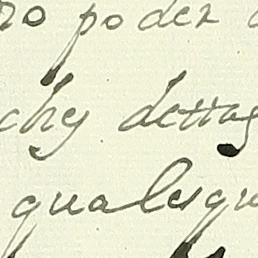 ro poder
chy dettas
qualesqu